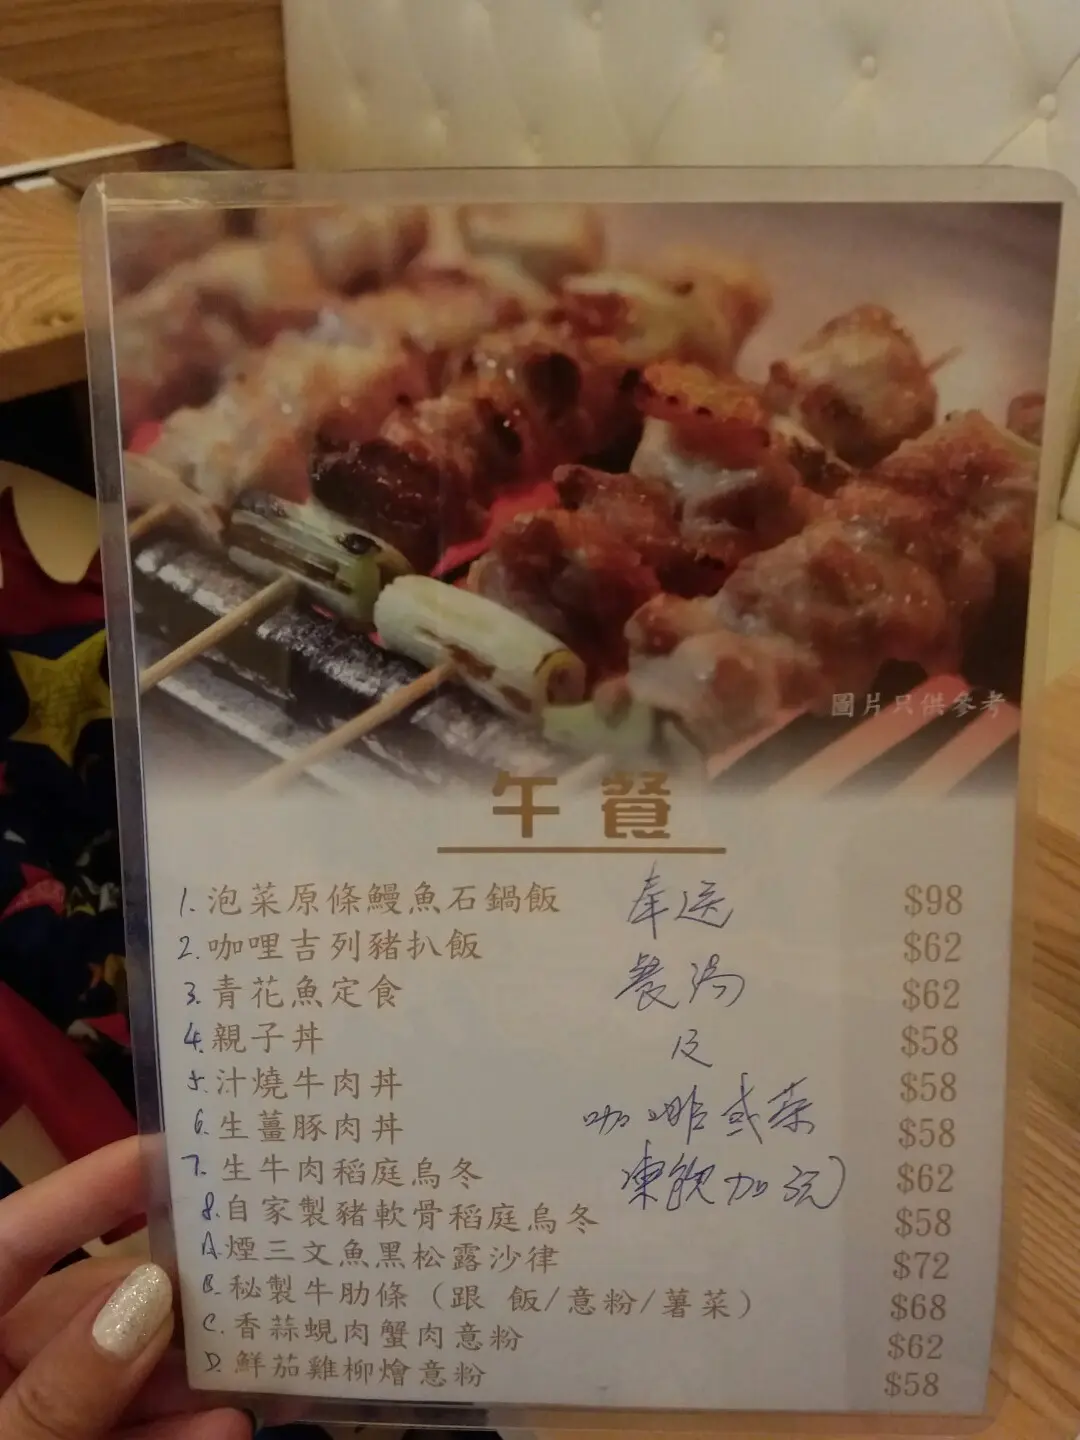 圖片只供參考
午餐
1. 泡菜原條鰻魚石鍋飯 $98
2. 咖哩吉列豬扒飯 $62
3. 青花魚定食 $62
4. 親子丼 $58
5. 汁燒牛肉丼 $58
6. 生薑豚肉丼 $58
7. 生牛肉稻庭烏冬 $62
8. 自家製豬軟骨稻庭烏冬 $58
A. 煙三文魚黑松露沙律 $72
B. 秘製牛肋條（跟 飯/意粉/薯菜） $68
C. 香蒜蜆肉蟹肉意粉 $62
D. 鮮茄雞柳燴意粉 $58
奉送
餐湯
及
咖啡或茶
凍飲加3元